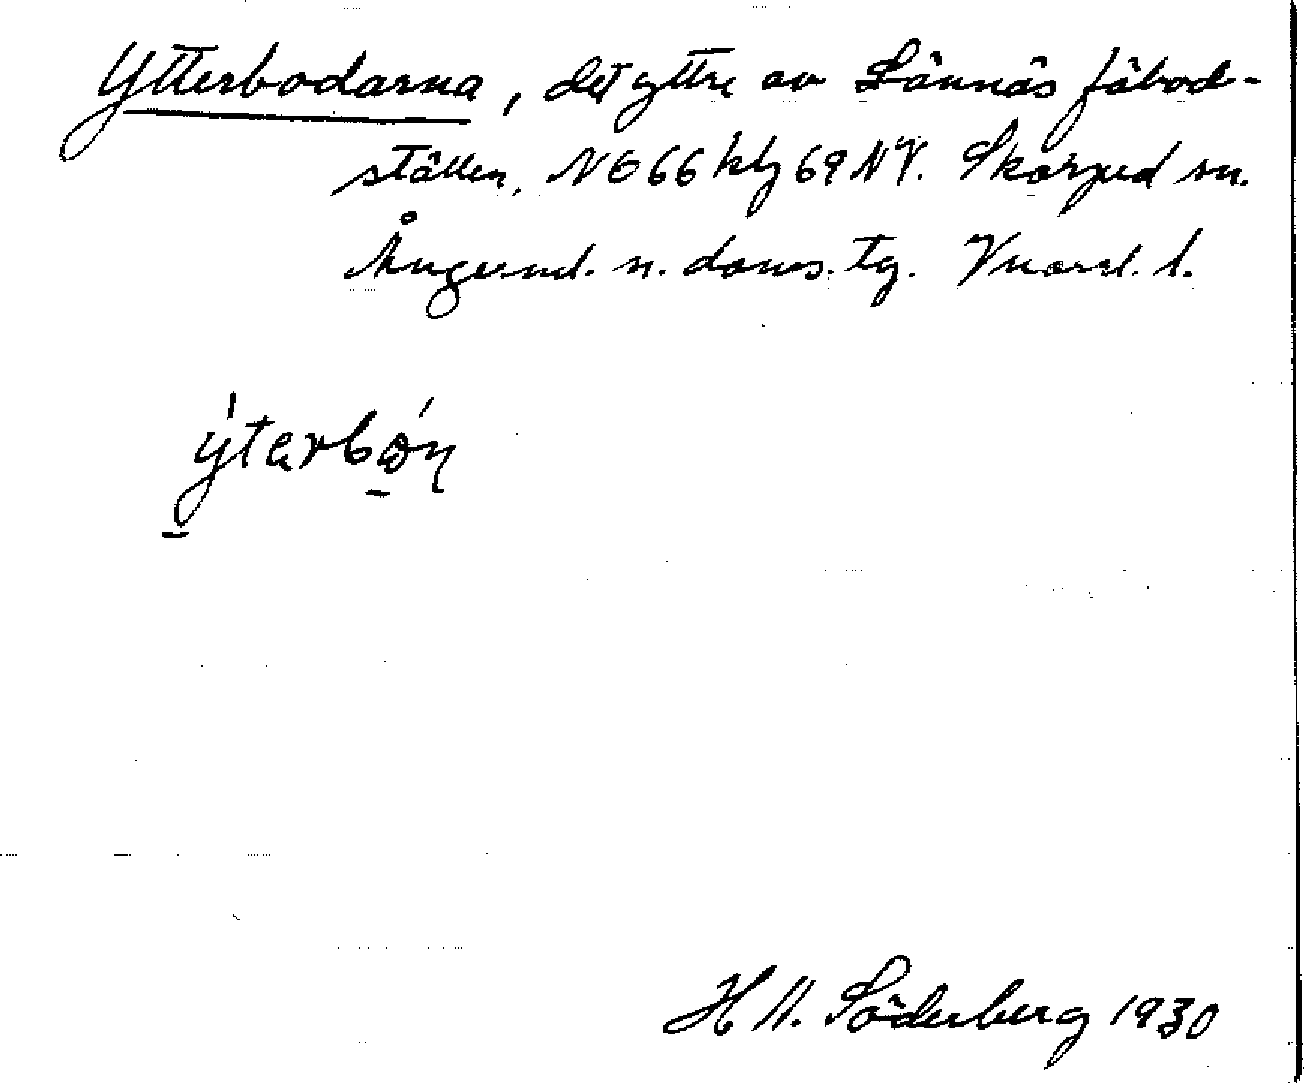 Ytterbodarna, det yttre av Lännäs fäbod-
ställen, NO 66 hbg 69 NV. Skorped sn.
Ångerml. n. doms. tg. Vnorrl. l.
ýtərbɷ́ɳ
H N. Söderberg 1930